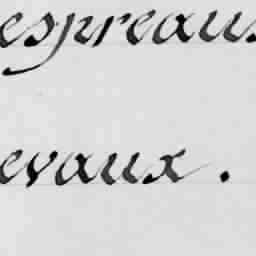 espreaux
evaux.